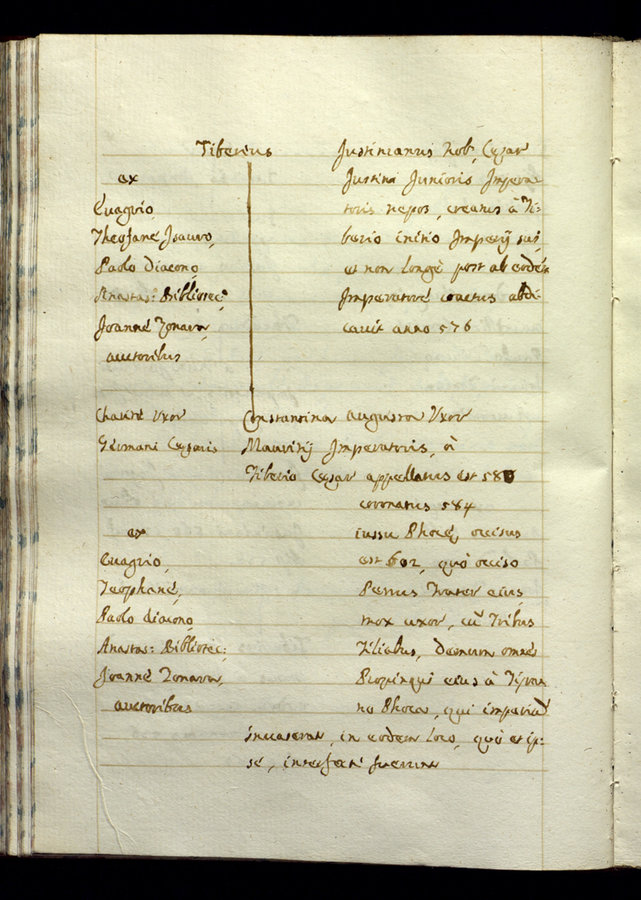 Tiberius Justinianus Nob. Cęsar
ex Justini Junioris Impera-
Euagrio, toris nepos, creatus à Ti-
Theofane Isauro, berio initio Imperÿ sui,
Paolo Diacono, et non longè post ab eodē
Anastas: Bibliotec: Imperatore coactus abdi-
Joanne Zonara, cauit anno 576
auctoribus
Uxor Constantina Augusta Uxor
Germani Cęsaris Mauritÿ Imperatoris, à
Tiberio Cęsar appellatus est 580
coronatus 584
ex iussu Phocę, occisus
Euagrio, est 602, quò occiso
Teophane, Petrus frater eius,
Paolo diacono, mox uxor, cū tribus
Anastas: Bibliotec: filiabus, demum omnes
Joanne Zonara, Propinqui eius à Tÿran-
auctoribus no Phoca, qui imperiū
inuaserat, in eodem loco, quò et ip-
se, interfecti fuerunt